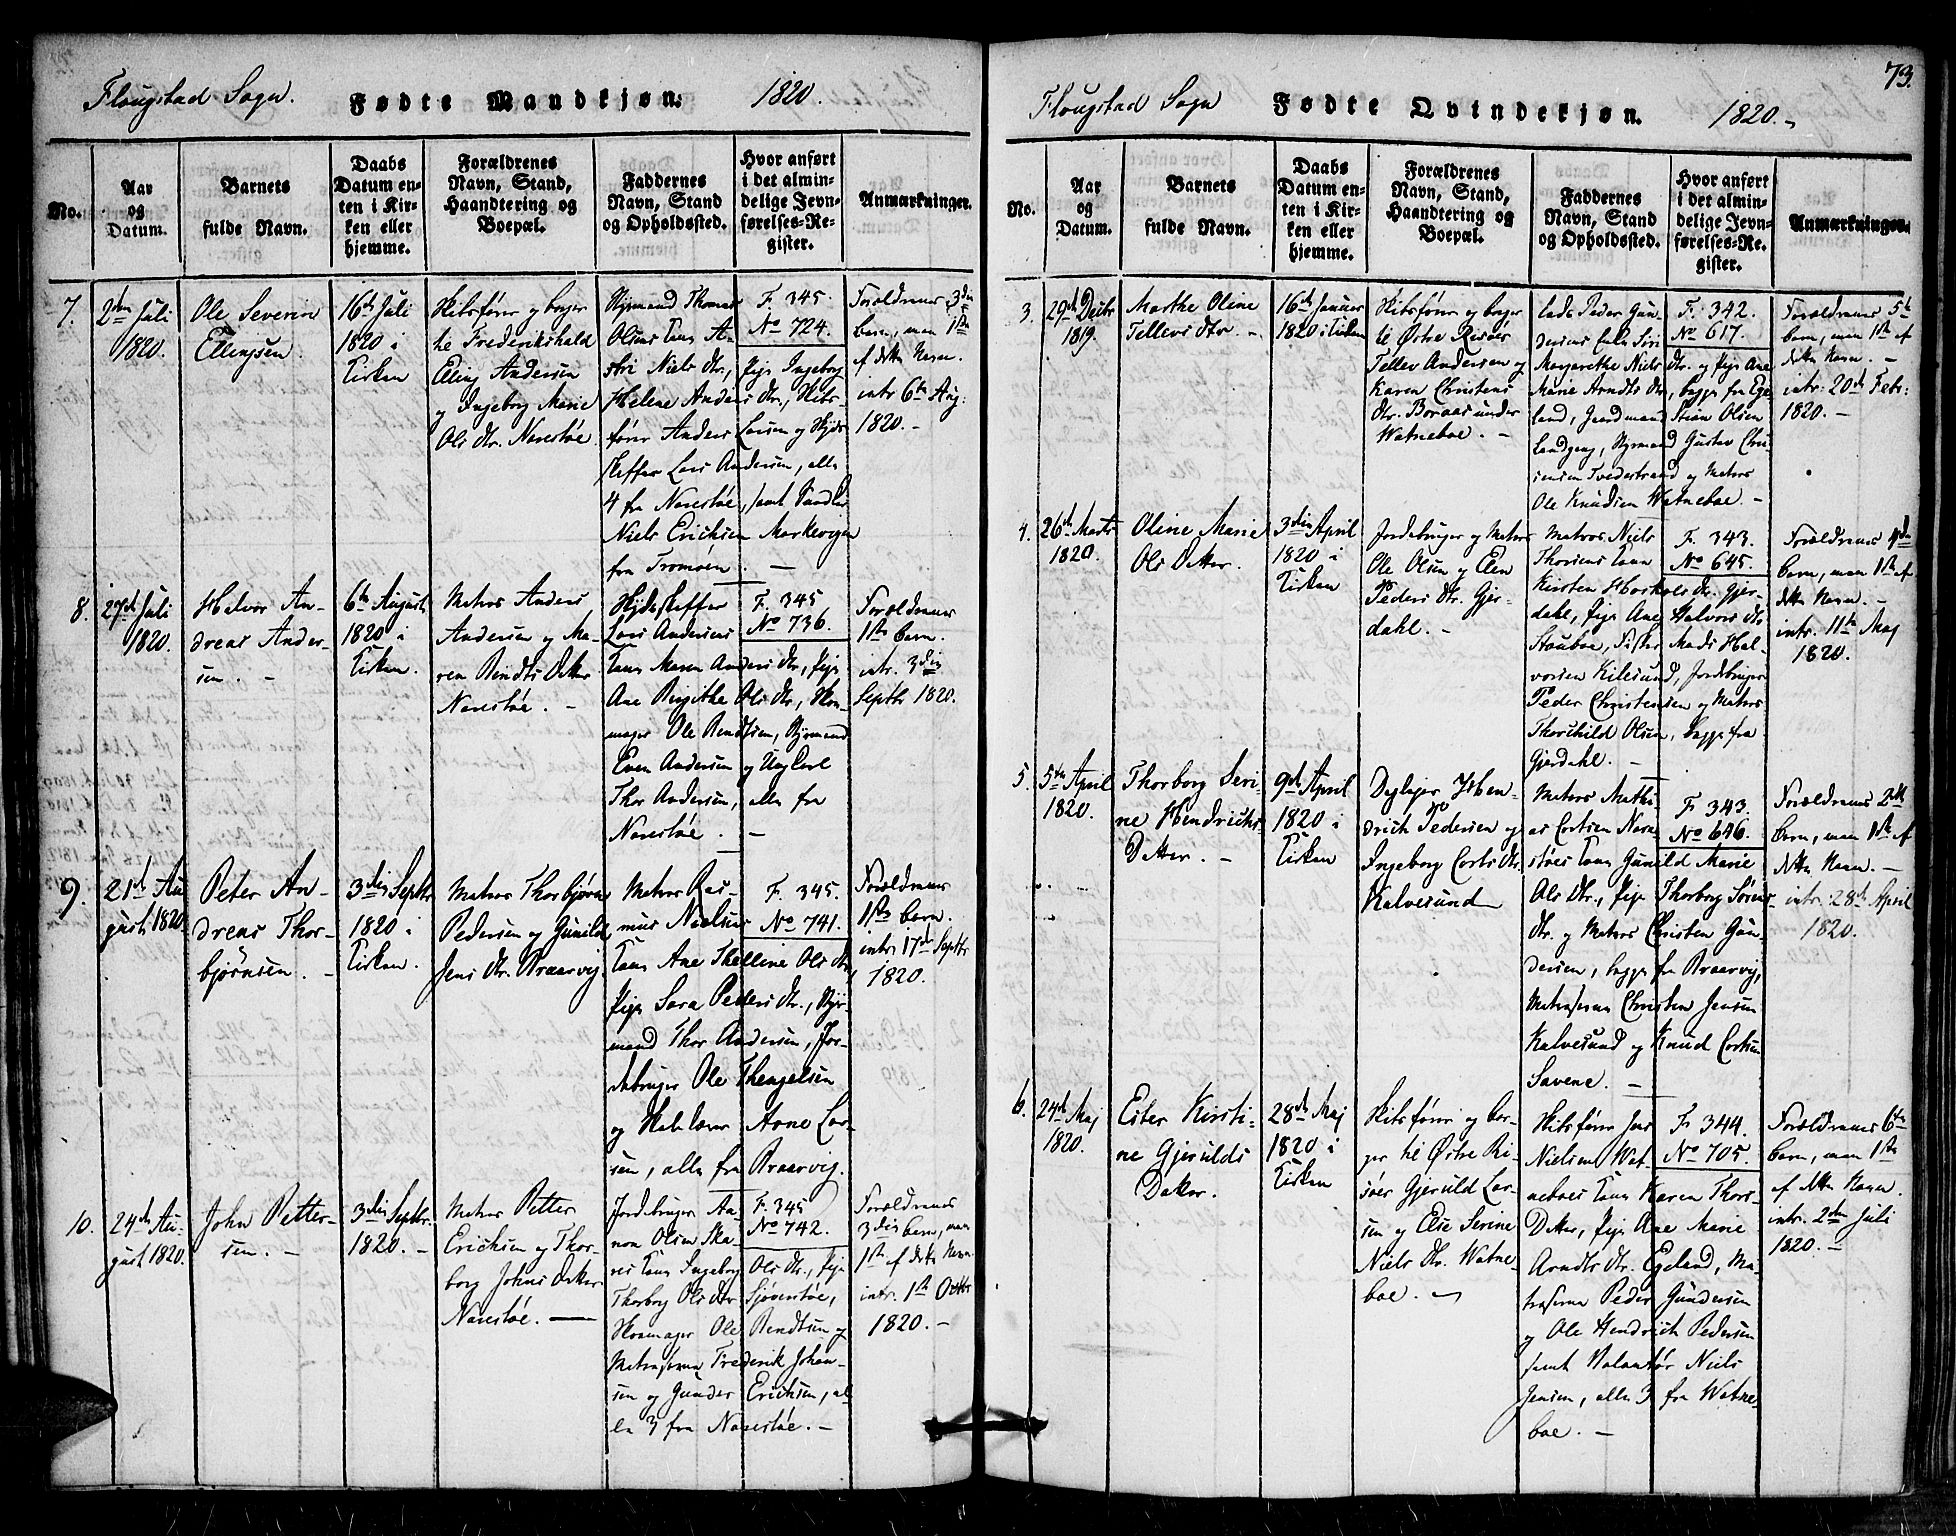 73.
Flougstad Sogn. Fødte Mandkjøn. 1820.
No.
Aar
og
Datum.
Barnets
fulde Navn.
Daabs
Datum en-
ten i Kir-
ken eller
hjemme.
Forældrenes
Navn, Stand,
Haandtering og
Boepæl.
Faddernes
Navn, Stand
og Opholdssted.
Hvor anført
i det almin-
delige Jevn-
førelses-Re-
gister.
Anmærkninger.
7.
2den Juli
1820.
Ole Severin
Ellingsen.
16de Juli
1820 i
Kirken
Skibsfører og borger
til Frederikshald
Elling Andersen
og Ingeborg Marie
Ols Dtr. Narestøe
Styrmand Thomas
Olsens Kone A-
stri Niels Dtr., Pige Ingeborg
Helene Anders Dtr., Skibs-
fører Anders Larsen og Skyds-
skaffer Lars Andersen, alle
4 fra Narestøe, samt
Niels Erichsen Markevigen
fra Tromøen. —
F. 345.
No 724.
Forældrenes 3die
barn, men 1ste
af dette Navn.
intr. 6te Aug.
1820. —
8.
27de Juli
1820.
Halvor An-
dreas Ander-
sen. —
6te August
1820 i
Kirken.
Matros Anders
Andersen og Ma-
ren Bendts Datter
Narestøe. —
Skydsskaffer
Lars Andersens
Kone Maren Anders Dtr., Pige
Ane Birgithe Ols Dtr., Skoe-
mager Ole Bendtsen, Styrmand
Even Andersen og Ung Carl
Thor Andersen, alle fra
Narestøe. —
F. 345
No 736.
Forældrenes
1ste barn.
intr. 3die
Septbr 1820.
9.
21de Au-
gust 1820
Peter An-
dreas Thor-
bjørnsen. —
3die Septbr.
1820 i
Kirken.
Matros Thorbjørn
Pedersen og Gunild
Jens Dtr. Braarvig.
Matros Ras-
mus Nielsens
Kone Ane Thelline Ols Dtr,
Pige Sara Peders Dtr., Styr-
mand Thor Andersen, Jor-
debruger Ole Thengelsen
og Skoleholder Aone Lar-
sen, alle fra Braarvig.
F. 345.
No 741.
Forældrenes
1ste barn.
intr. 17de Septbr
1820.
10.
24de Au-
gust 1820.
John Petter-
sen. —
3die Septbr.
1820. —
Matros Petter
Erichsen og Thor-
borg Johns Datter
Narestøe. —
Jordebruger Aa-
non Olsen Ska-
res Kone Ingeborg Ols Dtr., Pige
Thorborg Ols Dtr. Sjøverstøe,
Skoemager Ole Bendtsen og
Matroserne Frederik Johan-
sen og Gunder Erichsen, al-
le 3 fra Narestøe. —
F. 345
No 742.
Forældrenes
3die barn, men
1ste af dette Navn.
intr. 1ste Octbr
1820. —
Flougstad Sogn Fødte Qvindekjøn. 1820. —
No.
Aar
og
Datum.
Barnets
fulde Navn.
Daabs
Datum en-
ten i Kir-
ken eller
hjemme.
Forældrenes
Navn, Stand,
Haandtering og
Boepæl.
Faddernes
Navn, Stand
og Opholdssted.
Hvor anført
i det almin-
delige Jevn-
førelses-Re-
gister.
Anmærkninger.
3.
29de Decbr
1819.
Marthe Oline
Tellevs Dtr —
16de Januar
1820 i Kirken
Skibsfører og borger
til Østre Risøer
Tellev Andersen og
Karen Christens
Dtr. Boraas under
Watneboe. —
Lods Peder Gun-
dersens Enke Siri
Margarethe Niels Dtr. og Pige Ane
Marie Arndts Dtr., begge fra Ege-
land, Jordmand Stian Olsen
Landgang, Styrmand Gustav Chri-
stensen Tvedestrand og Matros
Ole Knudsen Watneboe. —
F. 342.
No 617.
Forældrenes 5te
barn, men 1ste af
dette Navn. —
intr. 20de Febr:
1820. —
4.
26de Marts
1820.
Oline Marie
Ols Datter.
3die April
1820 i
Kirken
Jordebruger og Matros
Ole Olsen og Elen
Peders Dtr. Gjer-
dahl. —
Matros Niels
Thorsens Kone
Kirsten Ols Dtr. Gjer-
dahl, Pige Ane Halvors Dtr
Stauboe, Fisker Mads Hal-
vorsen Kilesund, Jordebruger
Peder Christensen og Matros
Thorchild Olsen, begge fra
Gjerdahl. —
F. 343.
No 645.
Forældrenes
barn, men 1ste af
dette Navn. —
intr. 11te Maj
1820.
5.
5te April
1820.
Thorborg Seri-
ne Hendrichs
Datter. —
9de April
1820 i
Kirken
Deglæger Hen-
drich Pedersen og
Ingeborg Corts Dtr.
Kalvesund
Matros Mathi-
as Cortsen Nare-
støes Kone Gunild Marie
Ols Dtr., Pige Thorborg Sørens
Dtr. og Matros Christen Gun-
dersen, begge fra Braarvig,
Matroserne Christen Jensen
Kalvesund og Knud Cortsen
Savene. —
F. 343.
No 646.
Forældrenes 2det
barn, men 1ste af
dette Navn. —
intr. 28de April
1820.
6.
24de Maj
1820.
Ester Kirsti-
ne Gjerulds
Datter.
28de Maj
1820 i
Kirken
Skibsfører og bor-
ger til Østre Ri-
søer Gjeruld Lar-
sen og Else Serine
Niels Dtr. Watne-
boe. —
Skibsfører Jens
Nielsen Wat-
neboes Kone Karen Thors
Datter, Pige Ane Marie
Arndts Dtr. Egeland, Ma-
troserne Peder Gundersen
og Ole Hendrich Pedersen
samt Volontør Niels
Jensen, alle 3 fra Watne-
boe. —
F. 344.
No 705.
Forældrenes 6te
barn, men 1ste
af dette Navn.
intr. 2den Juli
1820. —